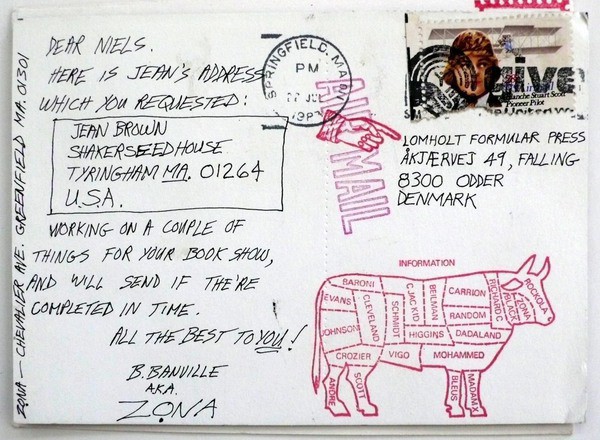 DEAR NIELS.
HERE IS JEAN'S ADDRESS
WHICH YOU REQUESTED:
JEAN BROWN
SHAKERSEEDHOUSE
TYRINGHAM MA. 01264
U.S.A.
WORKING ON A COUPLE OF
THINGS FOR YOUR BOOK SHOW,
AND WILL SEND IF THE'RE
COMPLETED IN TIME.
ALL THE BEST TO YOU!
B. BANVILLE
A.K.A.
ZONA
ZONA — CHEVALIER AVE. GREENFIELD MA. 01301
SPRINGFIELD, MA
PM
AIR MAIL
Blanche Stuart Scott
Pioneer Pilot
LOMHOLT FORMULAR PRESS
ÅKJÆRVEJ 49, FALLING
8300 ODDER
DENMARK
INFORMATION
BARONI
EVANS
CLEVELAND
JOHNSON
CROZIER
ANDRE
SCOTT
SCHMIDT
VIGO
C. JAC KID
HIGGINS
BEILMAN
CARRION
RANDOM
DADALAND
MOHAMMED
BLEUS
MADAM X
RICHARD C
BLACK
ZONA
ROCKOLA